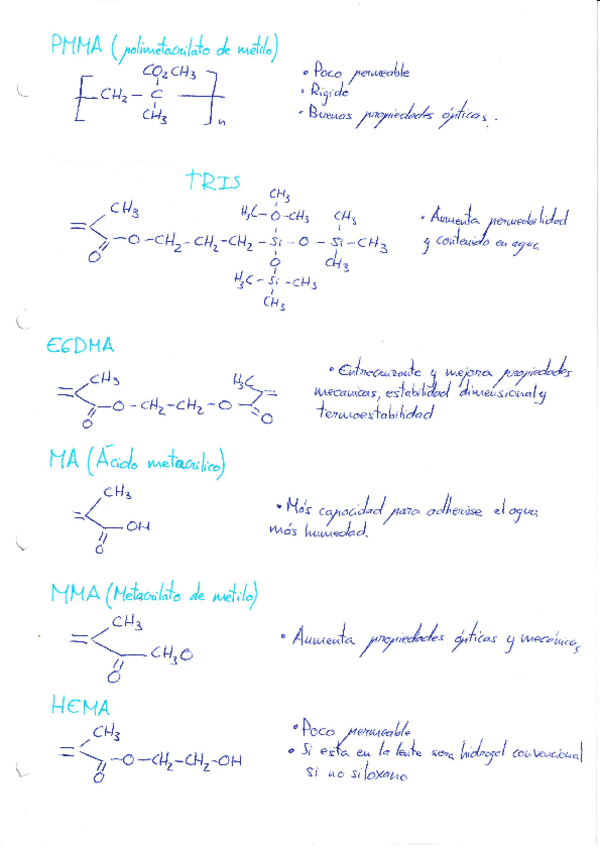 PMMA (polimetacrilato de metilo)
CO2CH3
CH2 – C
CH3
n
• Poco permeable
• Rigido
• Buenas propiedades ópticas.
TRIS
CH3
H3C–O–CH3
CH3
CH3
O–CH2–CH2–CH2–Si–O–Si–CH3
O
O
CH3
H3C–Si–CH3
CH3
• Aumenta permeabilidad
y contenido en agua
EGDMA
CH3
H3C
O–CH2–CH2–O
O
O
• Entrecruzante y mejora propiedades
mecanicas, estabilidad dimensional y
termoestabilidad
MA (Ácido metacrilico)
CH3
OH
O
• Más capacidad para adherirse el agua
más humedad.
MMA (Metacrilato de metilo)
CH3
CH3O
O
• Aumenta propiedades ópticas y mecánicas
HEMA
CH3
O–CH2–CH2–OH
O
• Poco permeable
• Si esta en la lente sera hidrogel convencional
si no siloxano